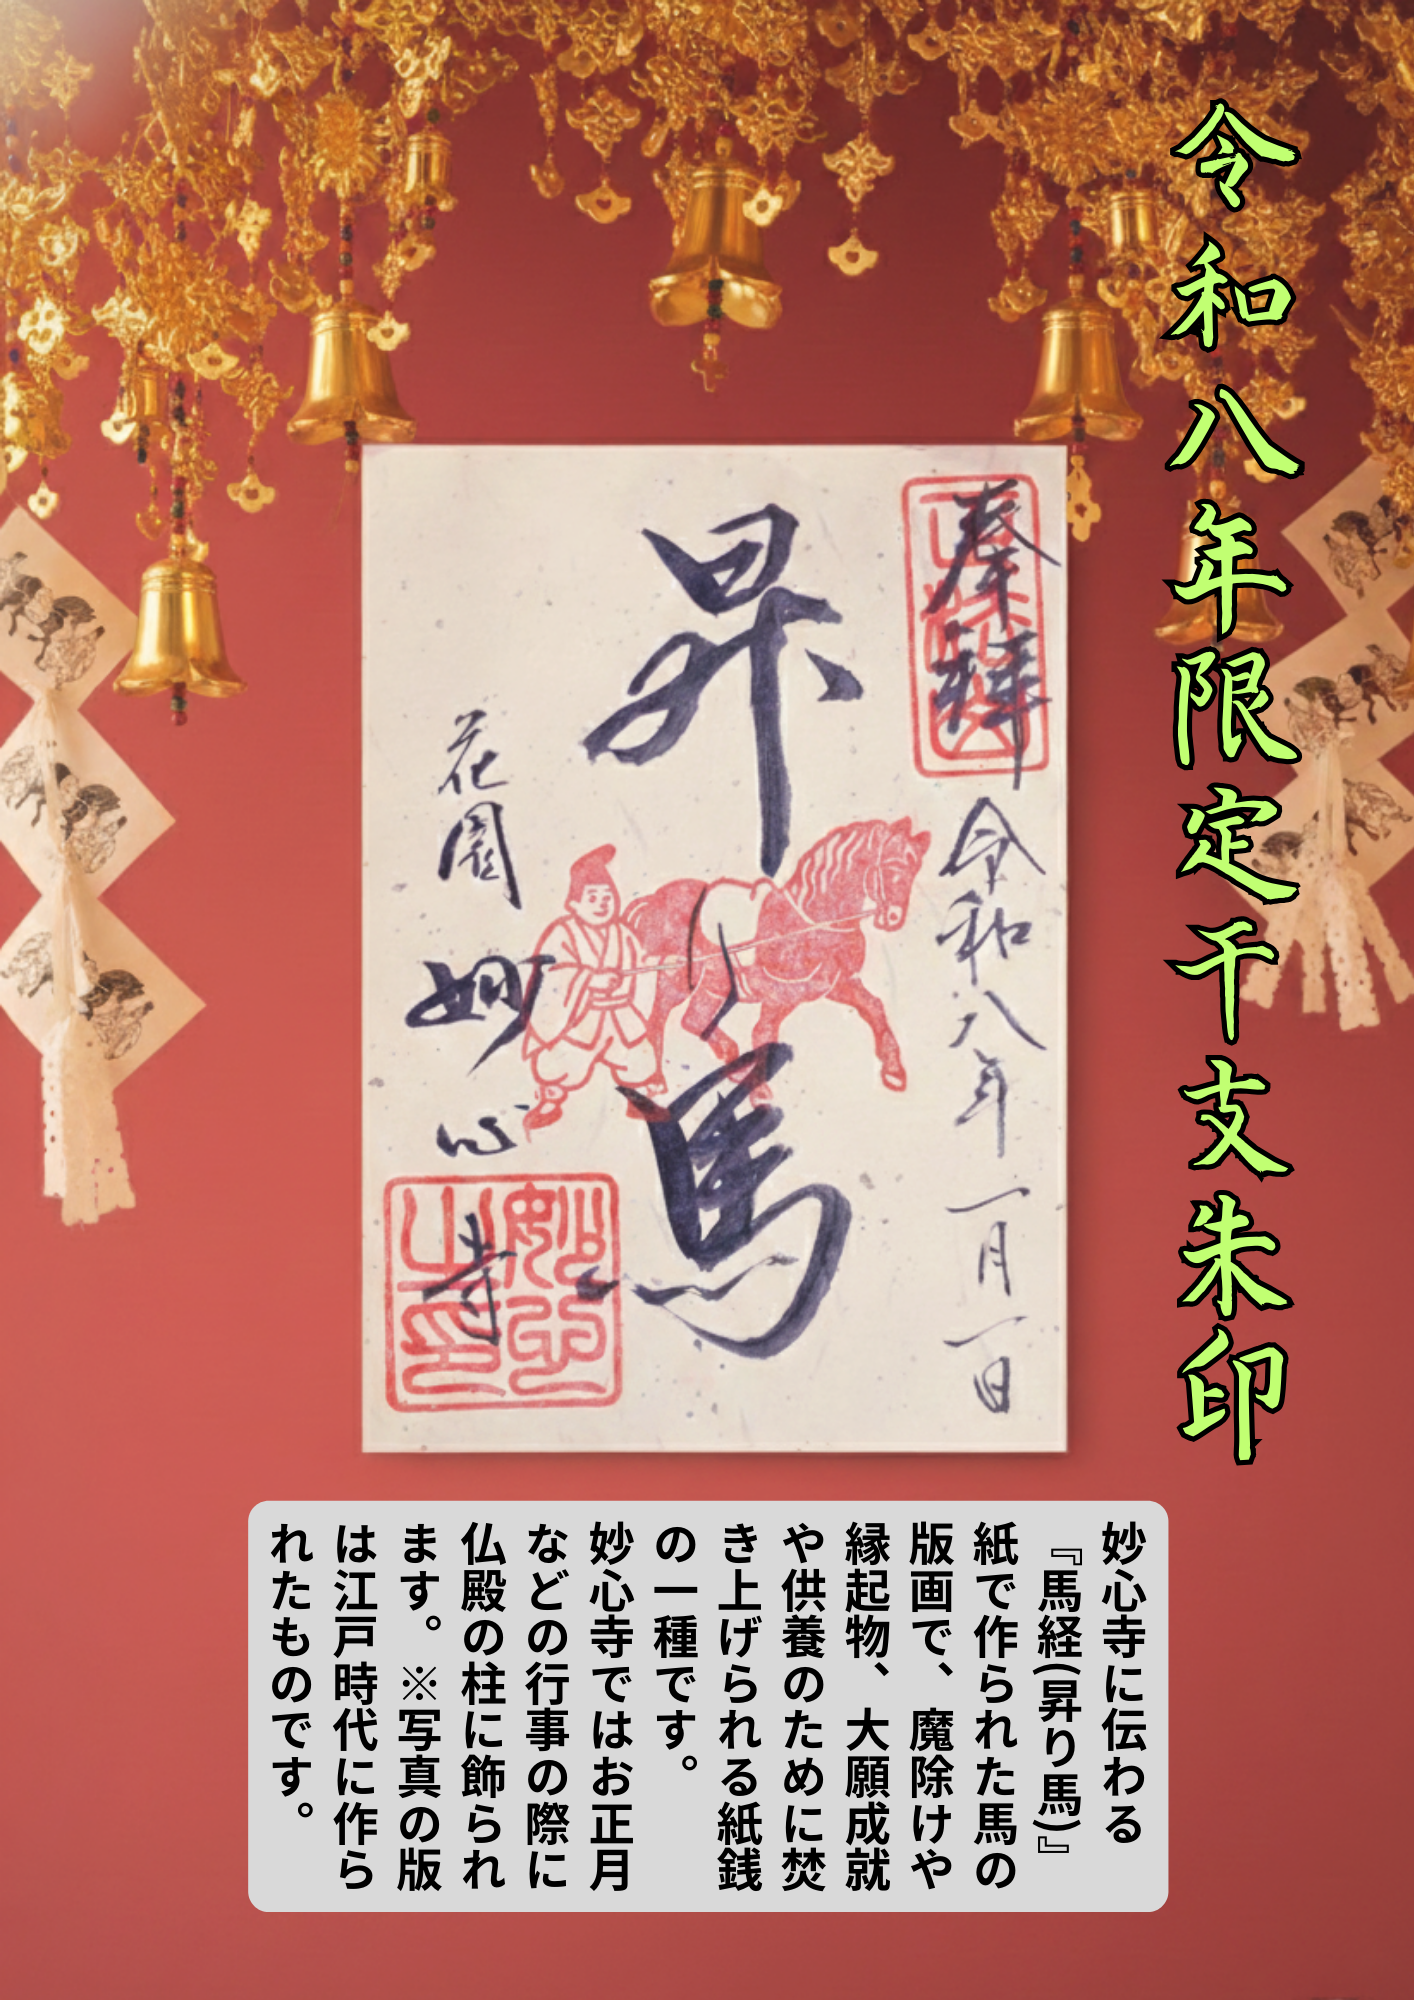 令和八年限定干支朱印
奉拝
令和八年一月一日
昇り馬
花園
妙心寺
妙心寺に伝わる
『馬経(昇り馬)』
紙で作られた馬の
版画で、魔除けや
縁起物、大願成就
や供養のために焚
き上げられる紙銭
の一種です。
妙心寺ではお正月
などの行事の際に
仏殿の柱に飾られ
ます。※写真の版
は江戸時代に作ら
れたものです。